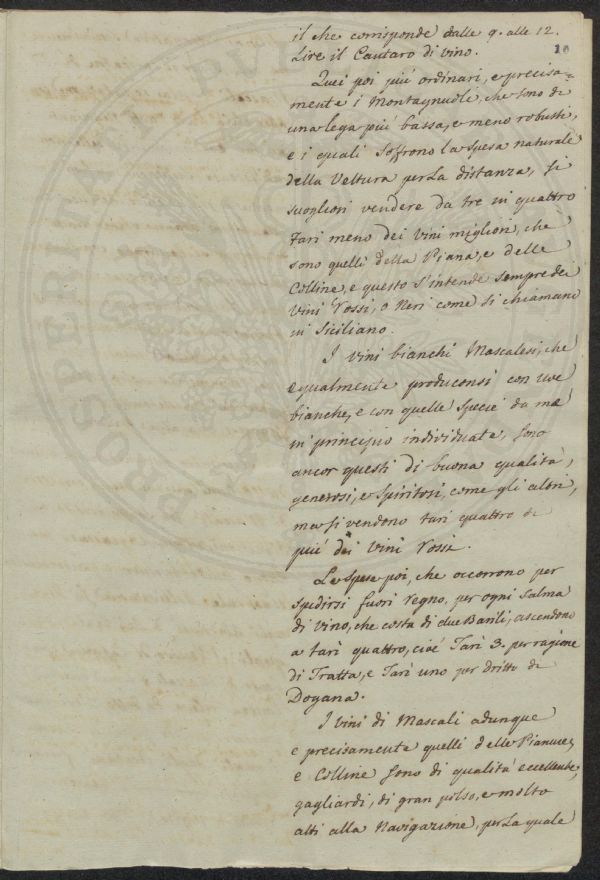 il che corrisponde dalle 9. alle 12.
Lire il Cantaro di vino.
10
Quei poi più ordinari, e precisa=
mente i Montagnuoli, che sono di
una lega più bassa, e meno robusti,
e i quali soffrono la spesa naturale
della Vettura per la distanza, si
sogliono vendere da tre in quattro
Tarì meno dei vini migliori, che
sono quelli della Piana, e delle
Colline, e questo s'intende sempre dei
Vini Rossi, o Neri come si chiamano
in Siciliano.
I vini bianchi Mascalesi, che
egualmente produconsi con uve
bianche, e con quelle specie da me
in principio individuate, sono
ancor questi di buona qualità,
generosi, e spiritosi, come gli altri,
ma si vendono tarì quattro di
più dei Vini Rossi.
Le spese poi, che occorrono per
spedirsi fuori regno, per ogni salma
di vino, che costa di due Barili, ascendono
a tarì quattro, cioè Tarì 3. per ragione
di Tratta, e Tarì uno per dritto di
Dogana.
I vini di Mascali adunque
e precisamente quelli delle Pianure,
e Colline sono di qualità eccellente,
gagliardi, di gran polso, e molto
atti alla Navigazione, per la quale
PROSPERITÀ